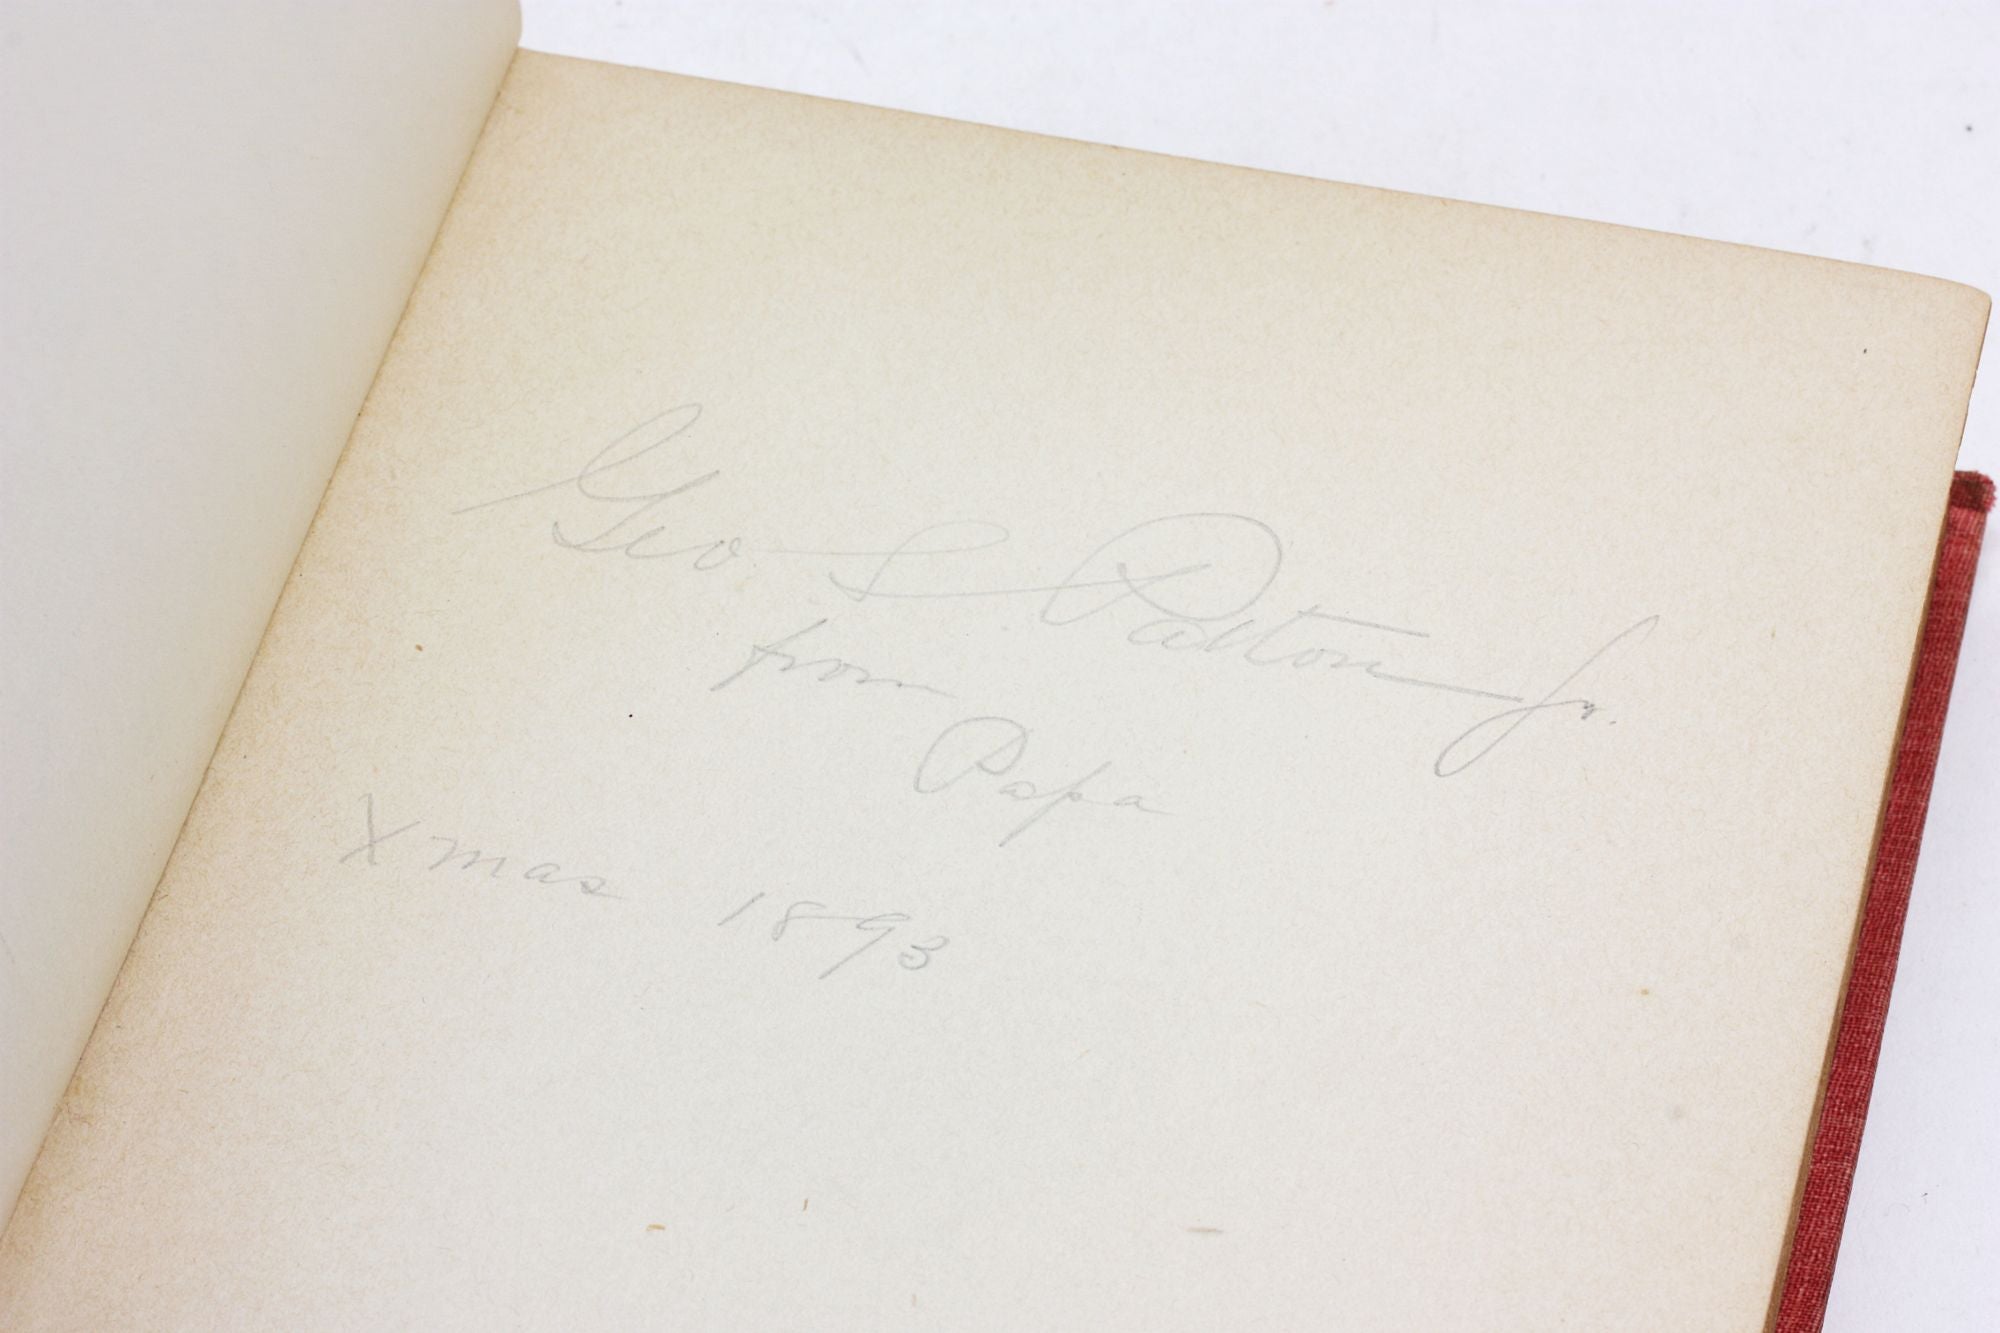 Geo S. Patton Jr.
from
Papa
Xmas 1893